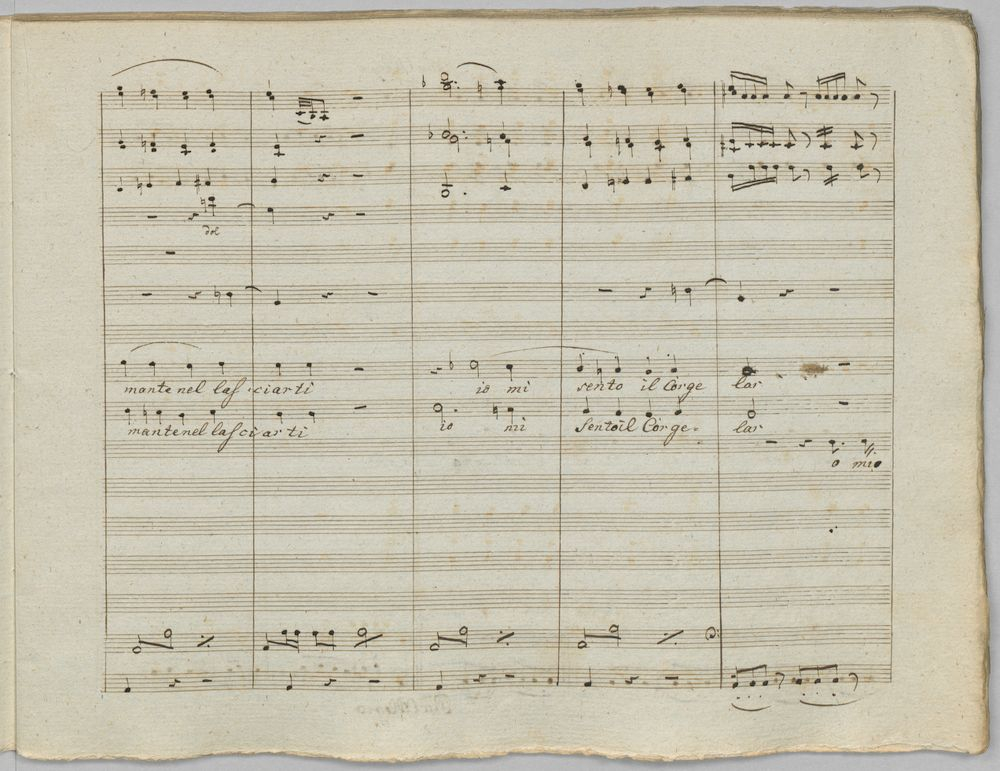 dol
mante nel laſ ciarti io mi sento il Cor ge lar
mante nel laſ ciar ti io mi Sento il Cor ge- lar
o mio